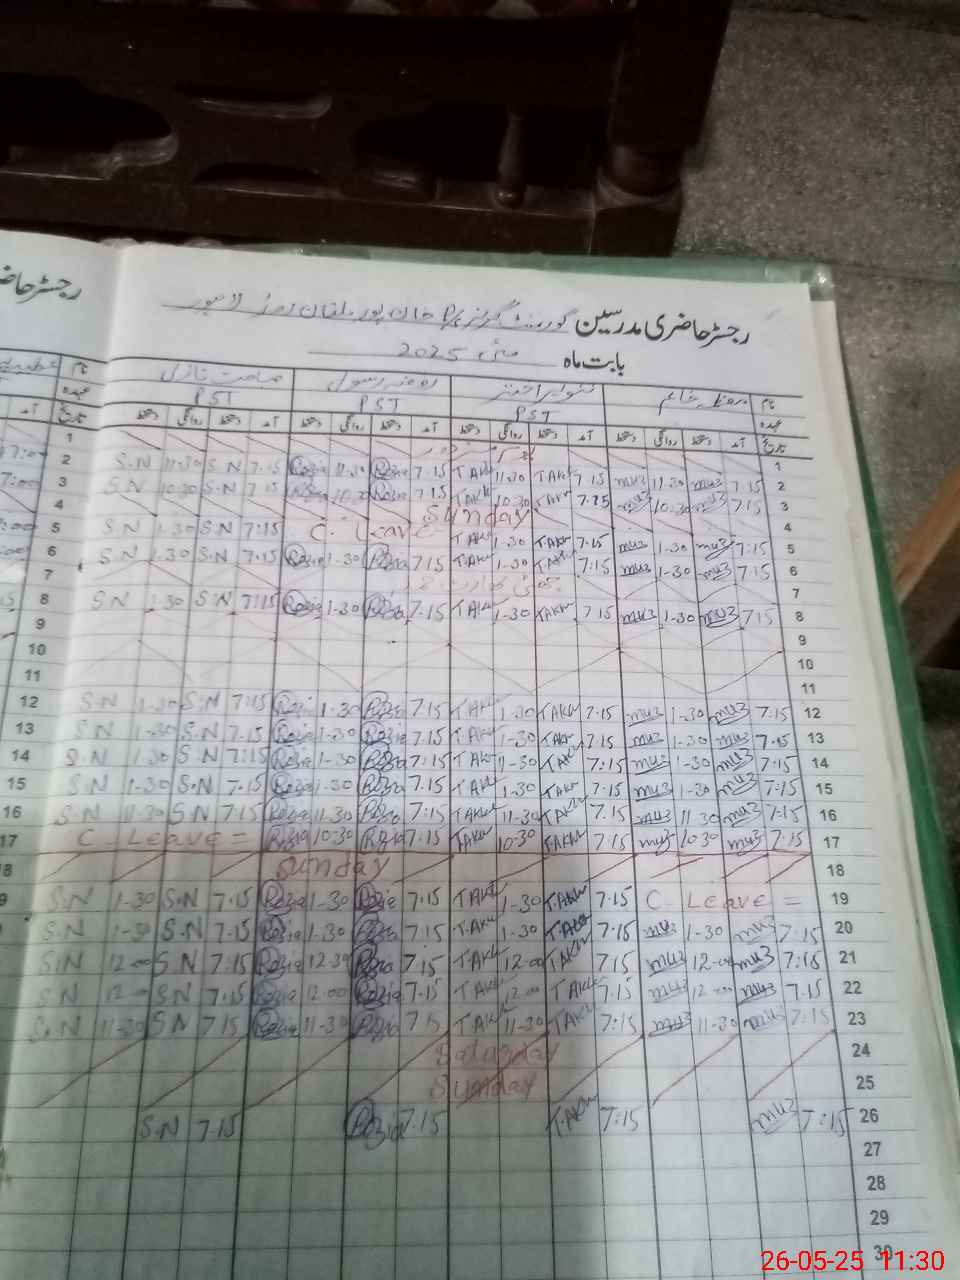 رجسٹر حاضری مدرسین گورنمنٹ گرلز P/S خان پور ملتان روڈ لاہور
رجسٹر حاضر
بابت ماہ مئی 2025
نام معظمہ خانم تنویر اختر روضہ رسول صاحت نازلی
عہدہ PST PST PST
تاریخ آمد دستخط روانگی دستخط آمد دستخط روانگی دستخط آمد دستخط روانگی دستخط آمد دستخط روانگی دستخط
1 1
2 S.N 11-30 S.N 7.15 Rozia 11.30 Rozia 7.15 TAKH 11.30 TAKH 7.15 muz 11.30 muz 7.15 2
3 S.N 10.30 S.N 7.15 Rozia 10.30 Rozia 7.15 TAKH 10.30 TAKH 7.15 muz 10.30 muz 7.15 3
4 Sunday 4
5 S.N 1.30 S.N 7:15 C. Leave TAKH 1.30 TAKH 7.15 muz 1-30 muz 7:15 5
6 S.N 1.30 S.N 7.15 Rozia 1.30 Rozia 7.15 TAKH 1-30 TAKH 7:15 muz 1-30 muz 7.15 6
7 7
8 S.N 1-30 S.N 7:15 Rozia 1-30 Rozia 7.15 TAKH 1-30 TAKH 7.15 muz 1-30 muz 7.15 8
9 9
10 10
11 11
12 S.N 1-30 S.N 7:15 Rozia 1-30 Rozia 7.15 TAKH 1.30 TAKH 7.15 muz 1-30 muz 7:15 12
13 S.N 1-30 S.N 7.15 Rozia 1-30 Rozia 7.15 TAKH 1-30 TAKH 7.15 muz 1-30 muz 7.15 13
14 S.N 1.30 S.N 7:15 Rozia 1-30 Rozia 7:15 TAKH 1-30 TAKH 7:15 muz 1-30 muz 7:15 14
15 S.N 1-30 S.N 7.15 Rozia 1-30 Rozia 7.15 TAKH 1-30 TAKH 7:15 muz 1-30 muz 7:15 15
16 S.N 11.30 S.N 7.15 Rozia 11.30 Rozia 7:15 TAKH 11-30 TAKH 7.15 muz 11.30 muz 7:15 16
17 C. Leave = Rozia 10:30 Rozia 7:15 TAKH 10-30 TAKH 7.15 muz 10.30 muz 7:15 17
18 Sunday 18
S.N 1-30 S.N 7.15 Rozia 1-30 Rozia 7.15 TAKH 1-30 TAKH 7.15 C. Leave = 19
S.N 1-30 S.N 7.15 Rozia 1.30 Rozia 7.15 TAKH 1-30 TAKH 7.15 muz 1-30 muz 7:15 20
S.N 12-00 S.N 7:15 Rozia 12-30 Rozia 7.15 TAKH 12-00 TAKH 7.15 muz 12-00 muz 7:15 21
S.N 12-00 S.N 7.15 Rozia 12-00 Rozia 7.15 TAKH 12-00 TAKH 7.15 muz 12-00 muz 7.15 22
S.N 11-30 S.N 7.15 Rozia 11-30 Rozia 7.15 TAKH 11-30 TAKH 7:15 muz 11-30 muz 7:15 23
Saturday 24
Sunday 25
S.N 7.15 Rozia 7.15 TAKH 7:15 muz 7:15 26
27
28
29
30
26-05-25 11:30